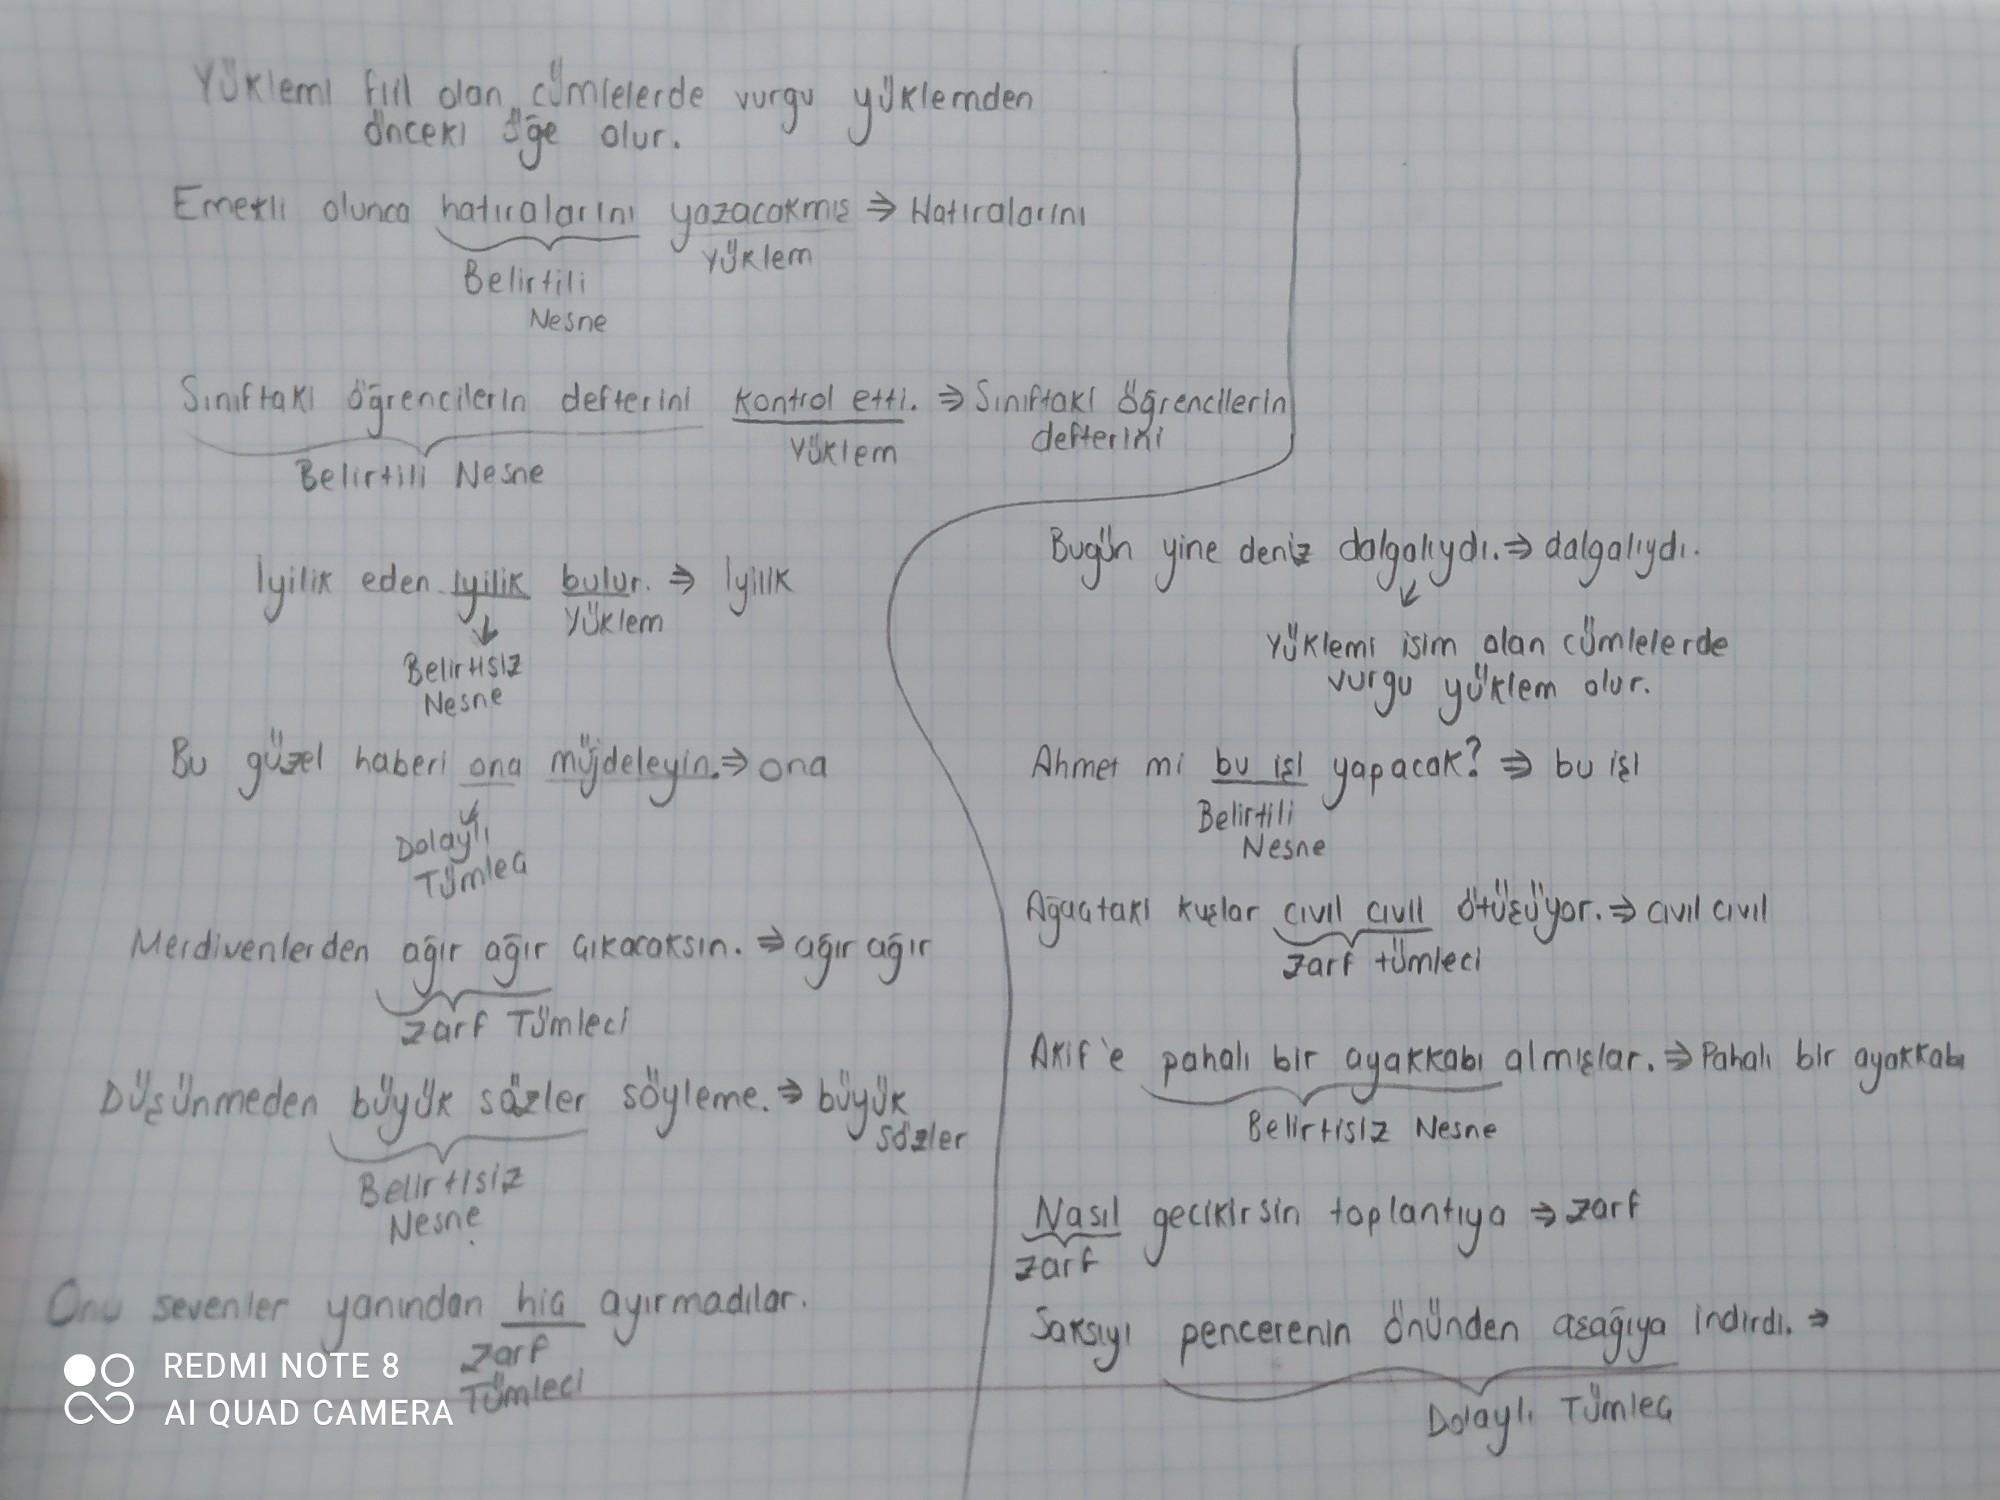 Yüklemi fiil olan cümlelerde vurgu yüklemden
önceki öğe olur.
Emekli olunca hatıralarını yazacakmış ⇒ Hatıralarını
Belirtili
Nesne
Yüklem
Sınıftaki öğrencilerin defterini kontrol etti. ⇒ Sınıftaki öğrencilerin
defterini
Belirtili Nesne
Yüklem
İyilik eden iyilik bulur. ⇒ İyilik
Yüklem
Belirtisiz
Nesne
Bu güzel haberi ona müjdeleyin. ⇒ ona
Dolaylı
Tümleç
Merdivenlerden ağır ağır çıkacaksın. ⇒ ağır ağır
Zarf Tümleci
Düşünmeden büyük sözler söyleme. ⇒ büyük
sözler
Belirtisiz
Nesne
Onu sevenler yanından hiç ayırmadılar.
Zarf
Tümleci
Bugün yine deniz dalgalıydı. ⇒ dalgalıydı.
Yüklemi isim olan cümlelerde
vurgu yüklem olur.
Ahmet mi bu işi yapacak? ⇒ bu işi
Belirtili
Nesne
Ağaçtaki kuşlar cıvıl cıvıl ötüşüyor. ⇒ cıvıl cıvıl
Zarf tümleci
Akif'e pahalı bir ayakkabı almışlar. ⇒ Pahalı bir ayakkabı
Belirtisiz Nesne
Nasıl gecikirsin toplantıya ⇒ zarf
zarf
Saksıyı pencerenin önünden aşağıya indirdi. ⇒
Dolaylı Tümleç
REDMI NOTE 8
AI QUAD CAMERA